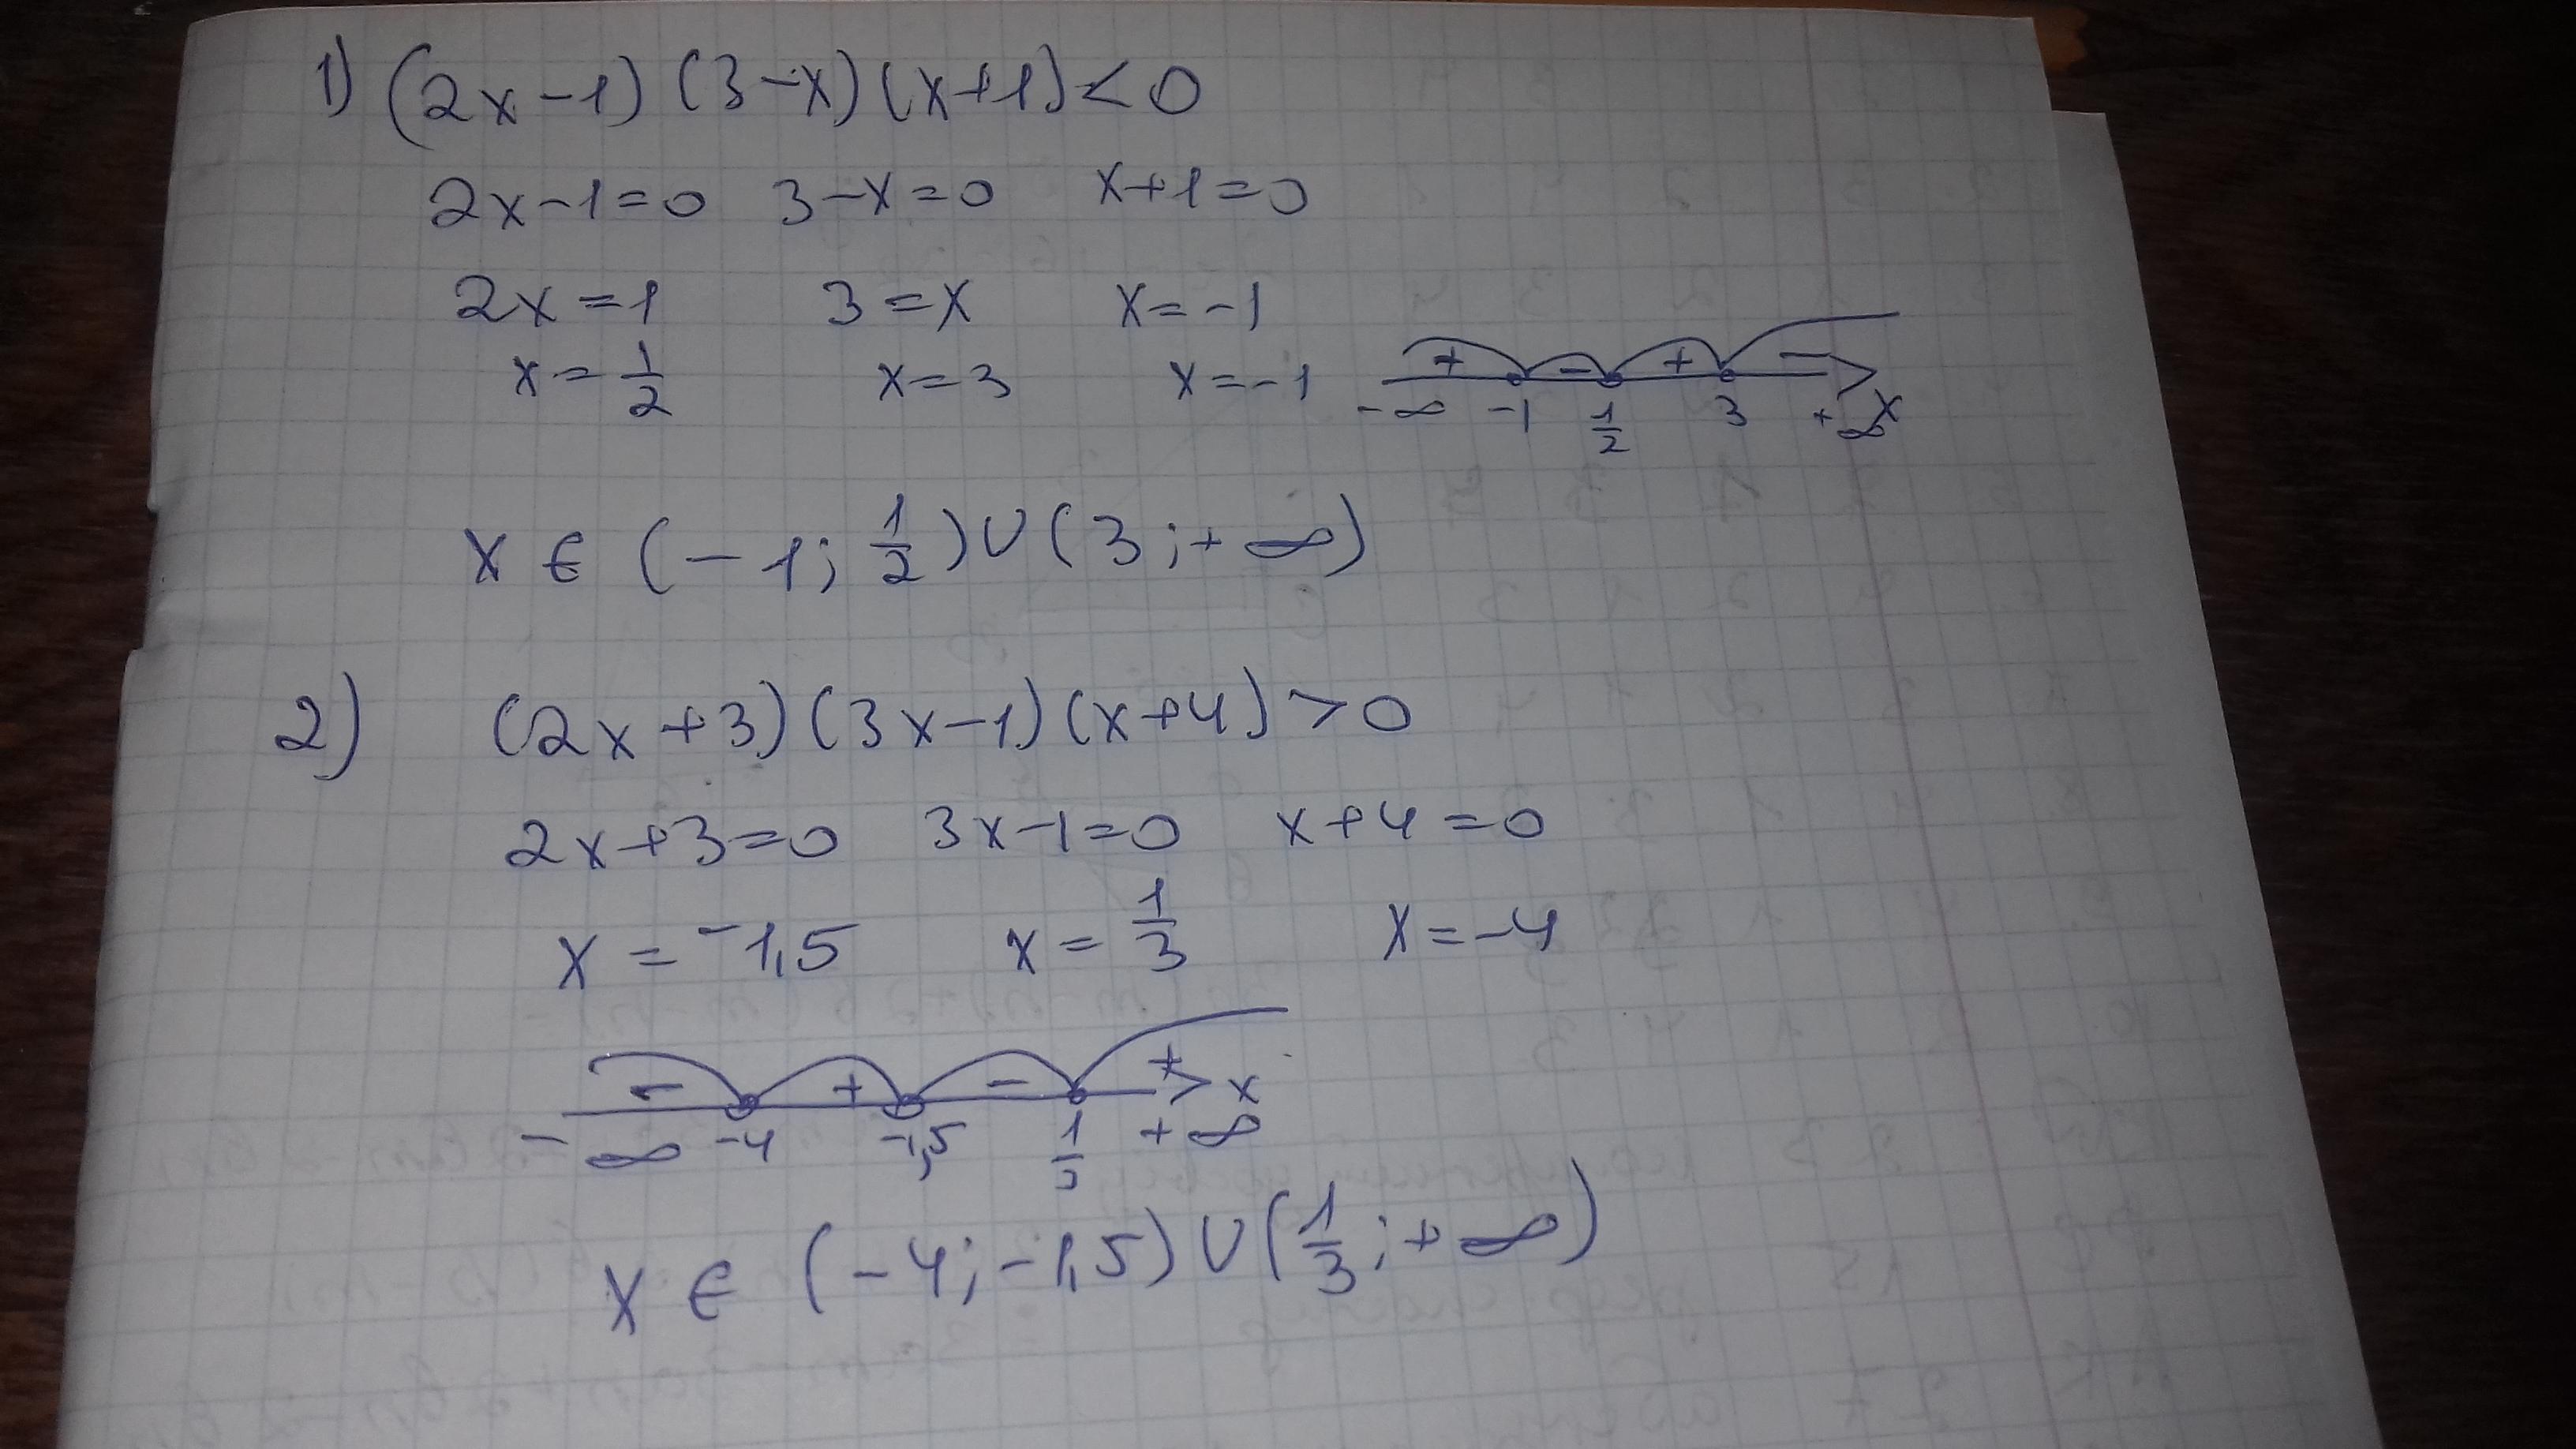 1) (2x-1)(3-x)(x+1)<0
2x-1=0 3-x=0 x+1=0
2x=1 3=x x=-1
x=1/2 x=3 x=-1
+ - + -
-∞ -1 1/2 3 +∞ x
x ∈ (-1; 1/2)∪(3;+∞)
2) (2x+3)(3x-1)(x+4)>0
2x+3=0 3x-1=0 x+4=0
x=-1,5 x=1/3 x=-4
- + - + x
-∞ -4 -1,5 1/3 +∞
x ∈ (-4;-1,5)∪(1/3;+∞)